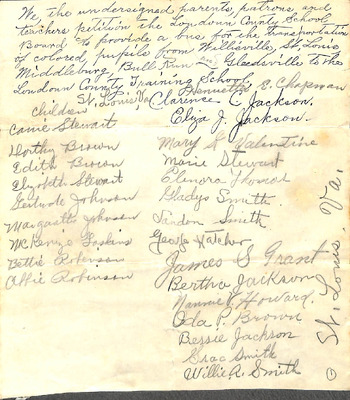 We, the undersigned parents, patrons and
teachers petition the Loudoun County School
Board to provide a bus for the transportation
of colored pupils from Willisville, St. Louis
Middleburg, Bull Run and Gleedsville to the
Loudoun County Training School.
Henrietta E. Chapman
St. Louis, Va
Clarence C. Jackson.
Children
Eliza J. Jackson.
Carrie Stewart
Dorthy Brown
Mary S. Valentine
Edith Brown
Marie Stewart
Elizabeth Stewart
Elenora Thomas
Gertrude Johnson
Gladys Smith
Margaette Johnson
Linden Smith
McKenzie Gaskins
George Hatcher
Bettie Robinson
James S Grant
Allie Robinson
Bertha Jackson
Nannie V. Howard.
Oda P. Brown
Bessie Jackson
Isac Smith
Willie A. Smith
St. Louis, Va.
1